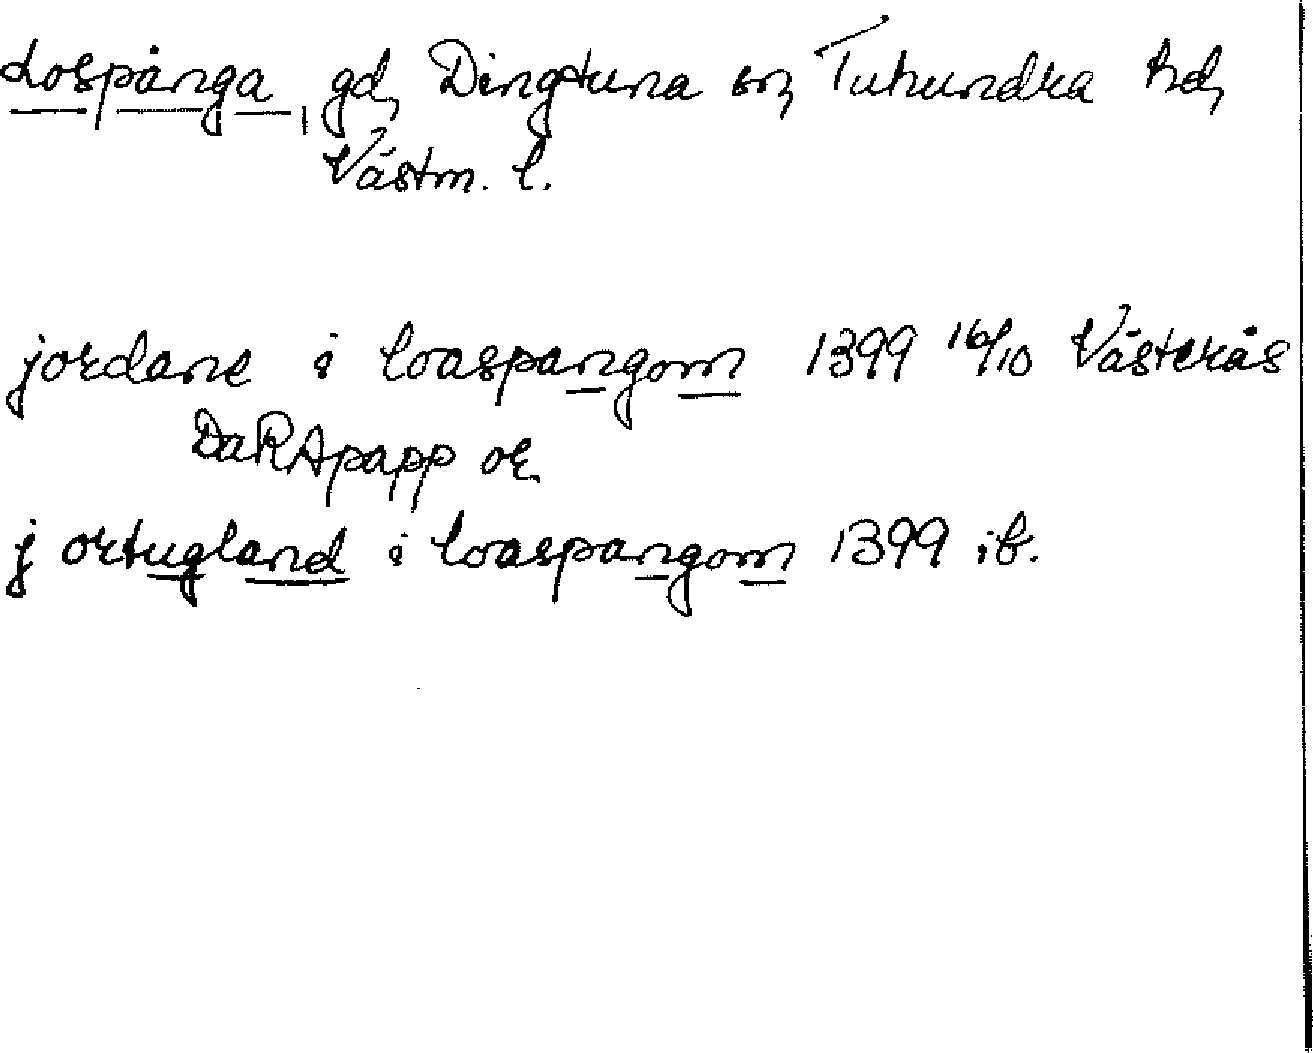 Lospånga, gd, Dingtuna sn, Tuhundra hd,
Västm. l.
jordane i loaspangom 1399 16/10 Västerås
DaRApapp or.
j ortugland i loaspangom 1399 ib.